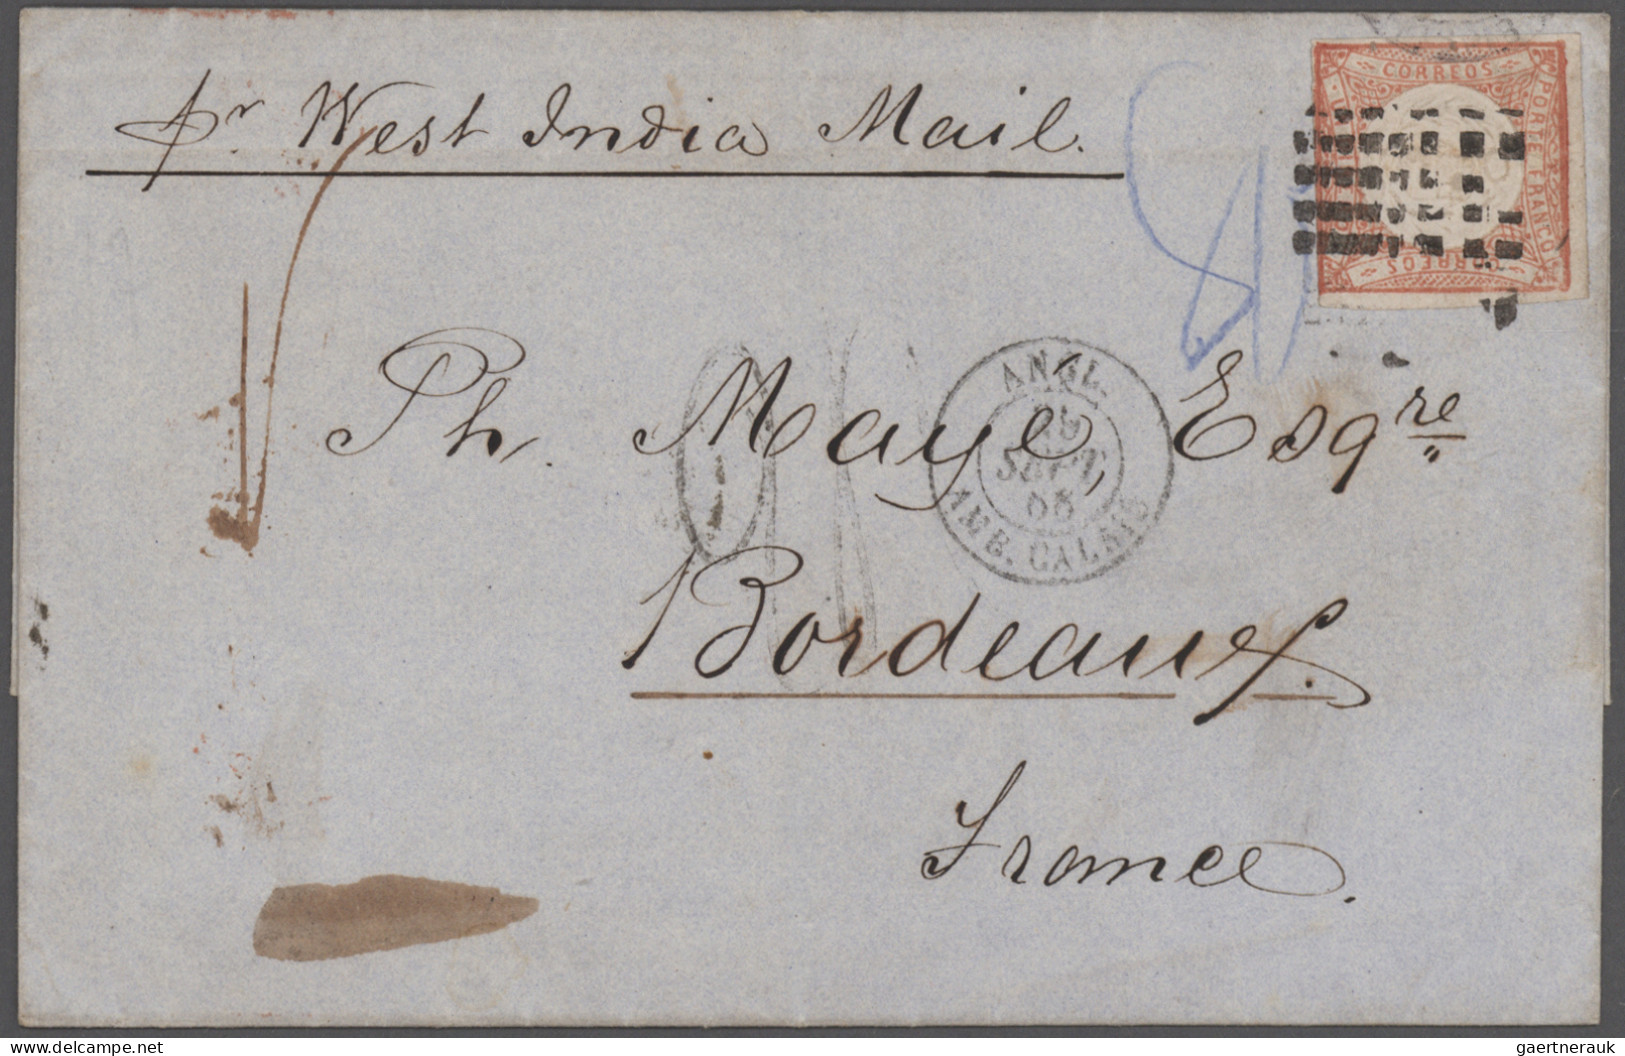 pr West India Mail.
CORREOS
PORTE FRANCO
CORREOS
Ph. Maye, Esqre
ANGL.
SEPT.
AMB. CALAIS
Bordeaux.
France.
gaertnerauk